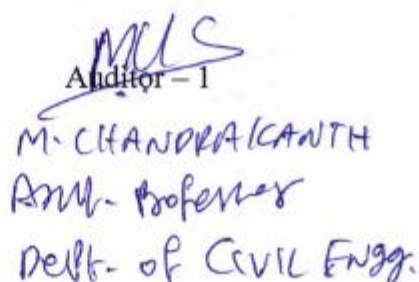 Auditor – 1
M. CHANDRAKANTH
Asst. Professor
Dept. of CIVIL Engg.